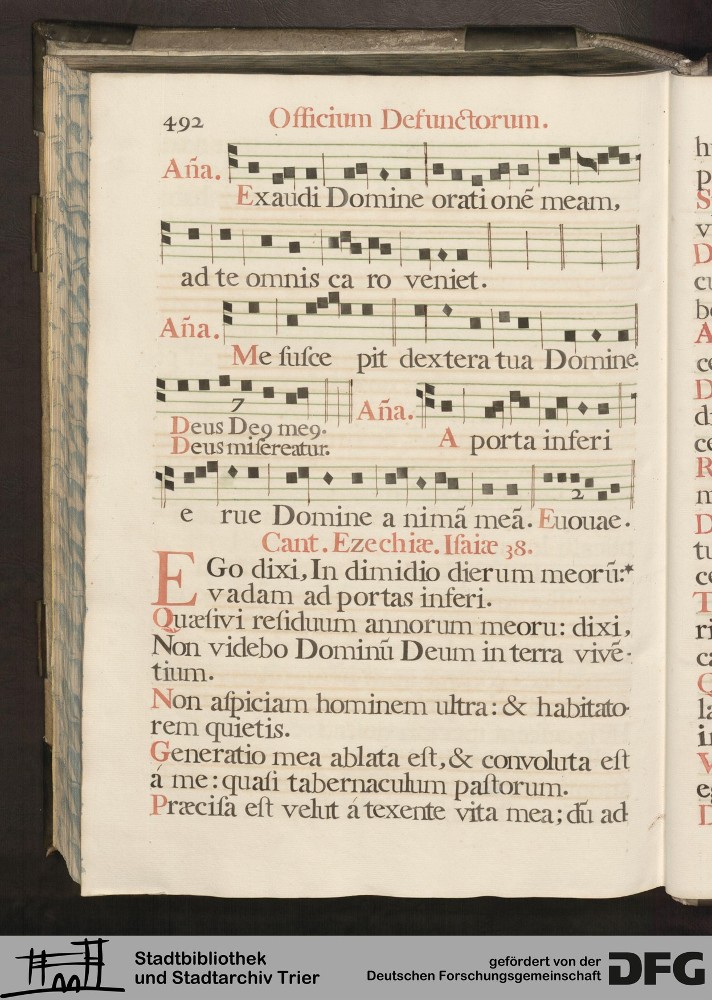 492 Officium Defunctorum.
Aña. Exaudi Domine orationē meam,
ad te omnis caro veniet.
Aña. Me ſuſce pit dextera tua Domine.
7
Deus De9 me9. Aña. A porta inferi
Deus miſereatur.
2
e rue Domine a nimā meā. Euouae.
Cant. Ezechiæ. Iſaiæ 38.
EGo dixi, In dimidio dierum meorū:*
vadam ad portas inferi.
Quæſivi reſiduum annorum meoru: dixi,
Non videbo Dominū Deum in terra vivē-
tium.
Non aſpiciam hominem ultra: & habitato-
rem quietis.
Generatio mea ablata eſt, & convoluta eſt
á me: quaſi tabernaculum paſtorum.
Præciſa eſt velut á texente vita mea; dū ad-
Stadtbibliothek
und Stadtarchiv Trier
gefördert von der
Deutschen Forschungsgemeinschaft
DFG